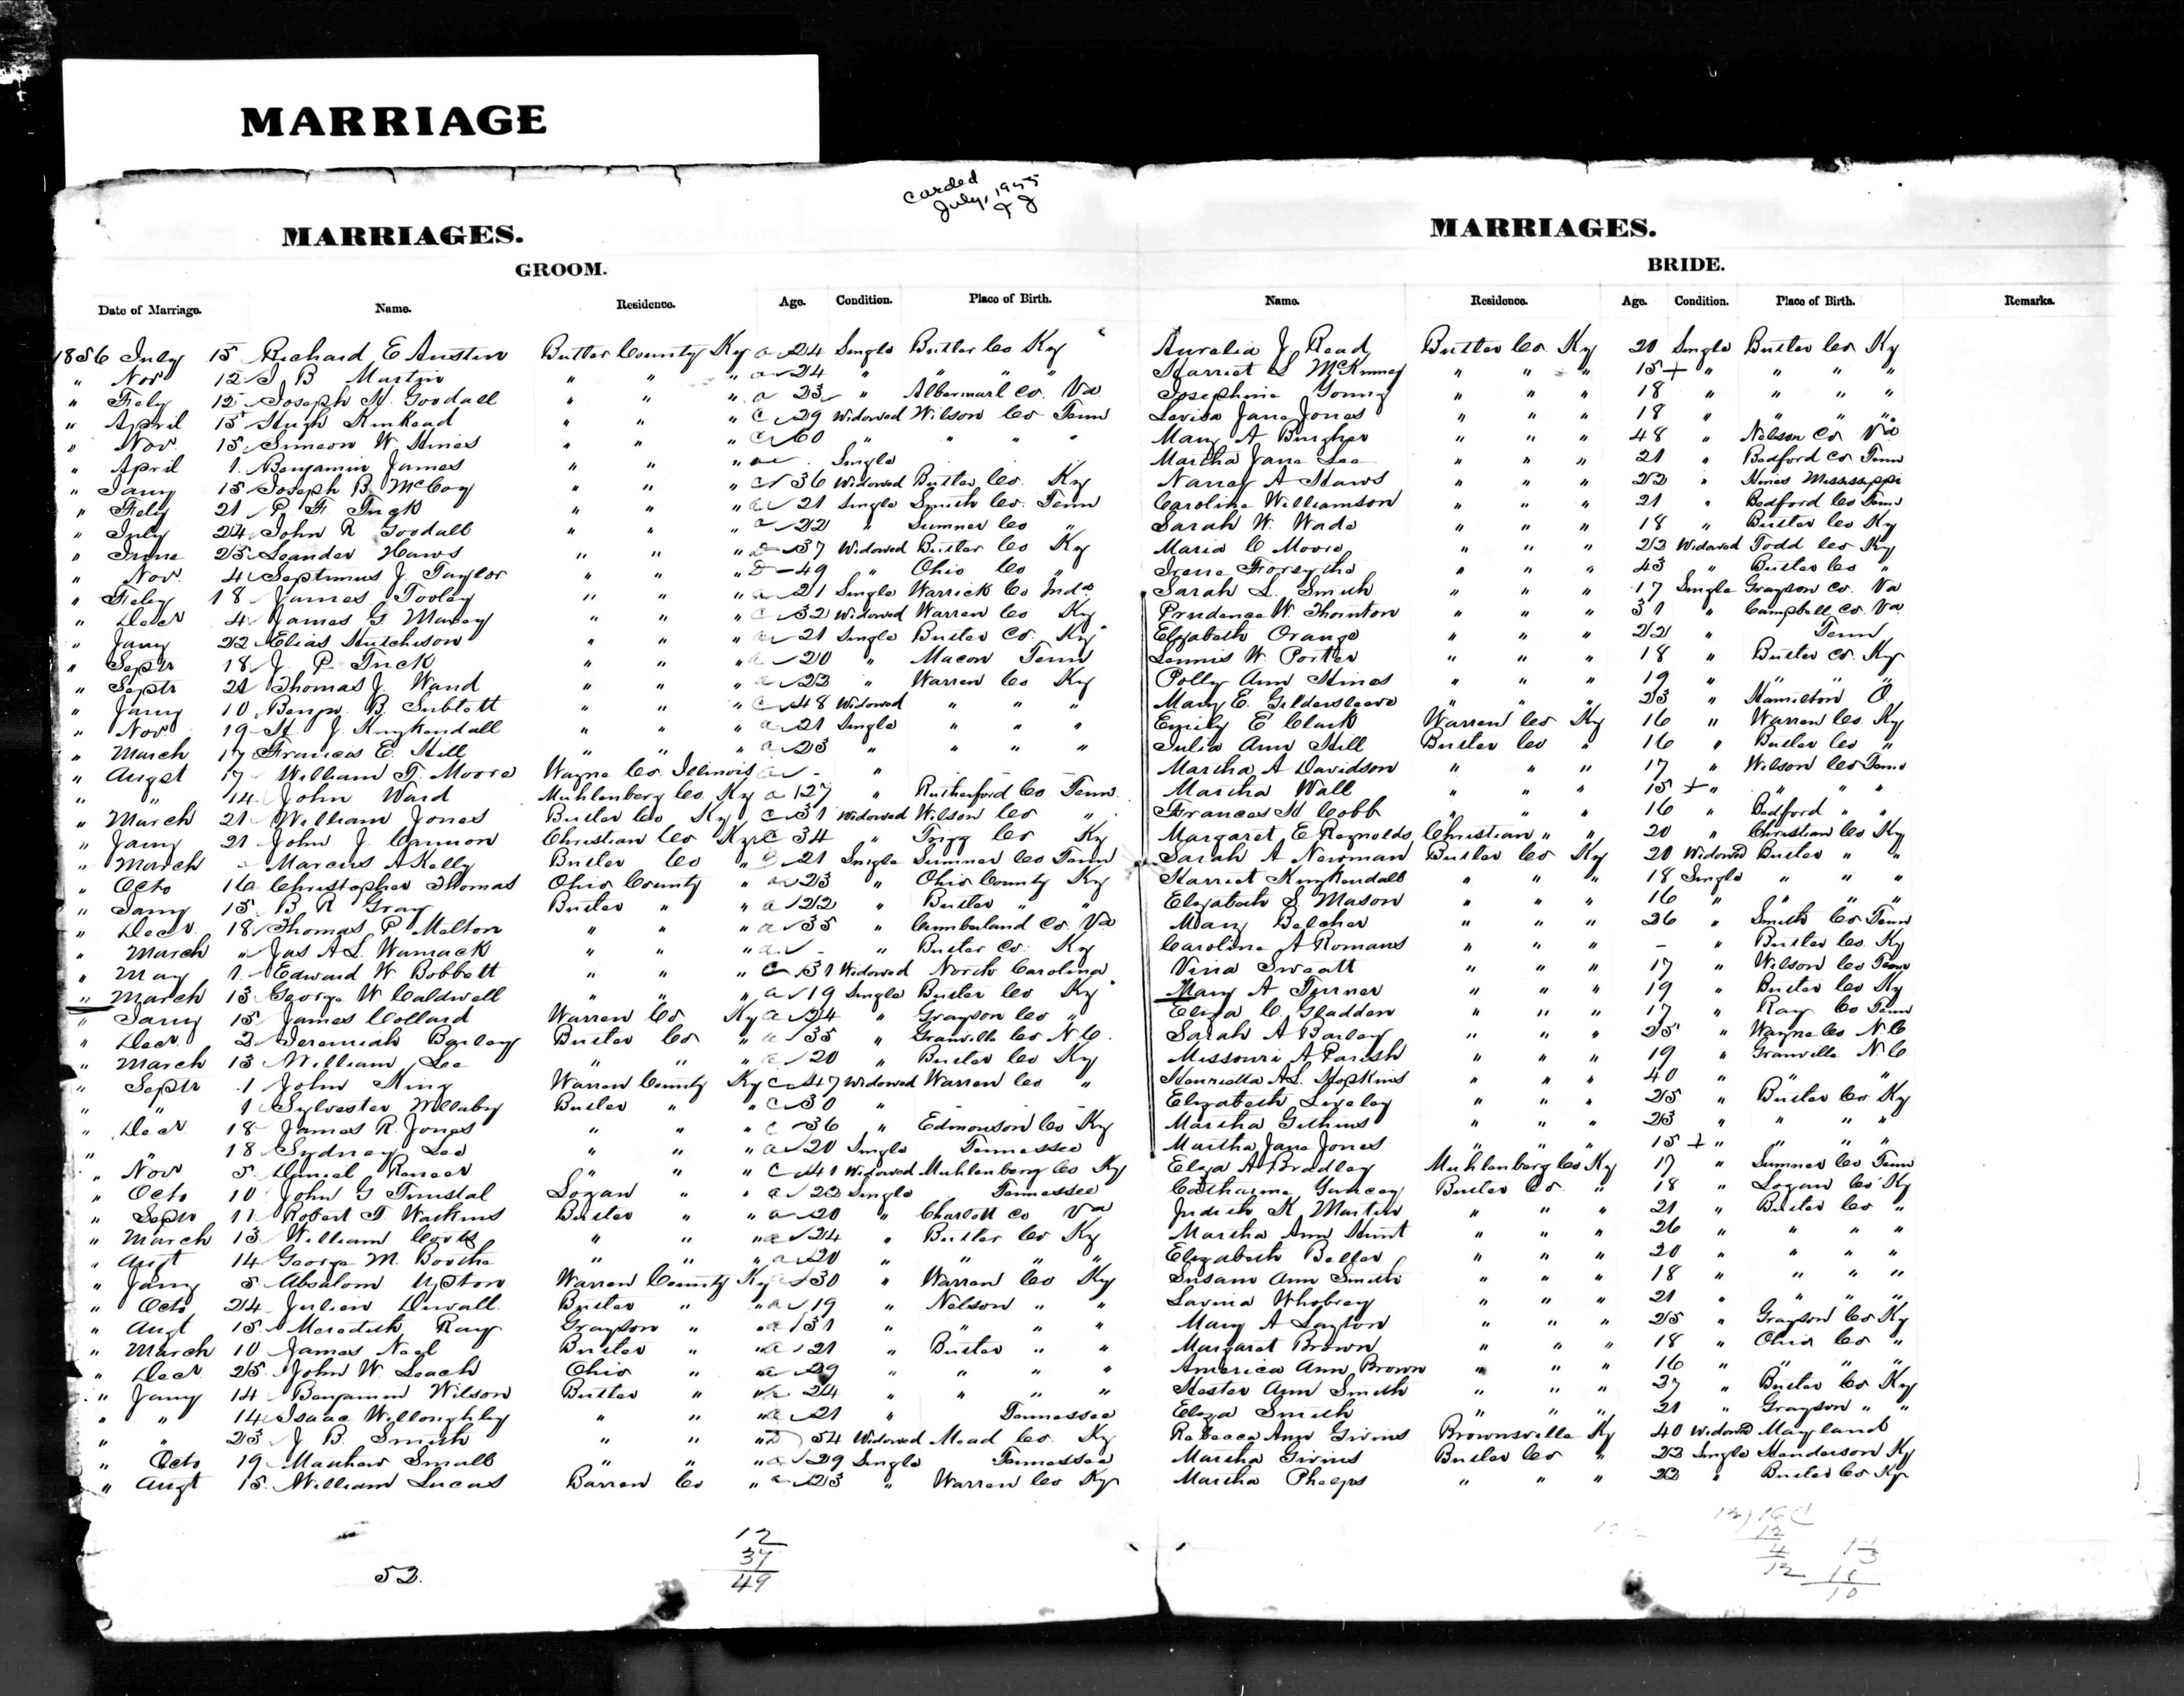 MARRIAGE
carded
July, 1955
MARRIAGES. MARRIAGES.
GROOM. BRIDE.
Date of Marriage. Name. Residence. Age. Condition. Place of Birth. Name. Residence. Age. Condition. Place of Birth. Remarks.
1856 July 15 Richard E Austin Butler County Ky a 24 Single Butler Co Ky Aurelia J Read Butler Co Ky 20 Single Butler Co Ky
" Nov 12 J B Martin " " " a 24 " " " " Harriet L McKinney " " " 15 + " " " "
" Feby 12 Joseph H. Goodall " " " a 23 " Albermarl Co. Va Josephine Young " " " 18 " " " "
" April 15 Hugh Kinkead " " " C 29 Widowed Wilson Co Tenn Levisa Jane Jones " " " 18 " " " "
" Nov. 15 Simeon W. Hines " " " C 60 " " " " Mary A Burgher " " " 48 " Nelson Co Va
" April 1 Benjamin James " " " a Single Martha Jane Lee " " " 21 " Bedford Co Tenn
" Jany 15 Joseph B. McCoy " " " C 36 Widowed Butler Co. Ky Nancy A Haws " " " 22 " Hines Mississippi
" Feby 21 P. F. Tuck " " " a 21 Single Smith Co. Tenn Caroline Williamson " " " 21 " Bedford Co Tenn
" July 24 John R Goodall " " " a 22 " Sumner Co " Sarah W. Wade " " " 18 " Butler Co Ky
" June 25 Leander Haws " " " D 37 Widowed Butler Co Ky Maria C Moore " " " 22 Widowed Todd Co Ky
" Nov. 4 Septimus J. Taylor " " " D 49 " Ohio Co " Irene Forsythe " " " 43 " Butler Co "
" Feby 18 James Tooley " " " a 21 Single Warrick Co Inda Sarah L. Smith " " " 17 Single Grayson Co. Va
" Decr 4 James G Maxey " " " C 32 Widowed Warren Co Ky Prudence W. Thornton " " " 31 " Campbell Co. Va
" Jany 22 Elias Hutchison " " " a 21 Single Butler Co. Ky Elizabeth Orange " " " 22 " Tenn
" Septr 18 J. P. Tuck " " " a 20 " Macon Tenn Lennis W. Porter " " " 18 " Butler Co. Ky
" Septr 21 Thomas J. Wand " " " a 23 " Warren Co Ky Polly Ann Hines " " " 19 " " " "
" Jany 10 Benjn. B. Sublett " " " C 48 Widowed " " " Mary E. Gildersleeve " " " 23 " Hamilton O.
" Nov 19 H. J. Kuykendall " " " a 21 Single " " " Emily E Clark Warren Co Ky 16 " Warren Co. Ky
" March 17 Francis E. Hill " " " a 23 " " " " Julia Ann Hill Butler Co " 16 " Butler Co "
" Augst 17 William T. Moore Wayne Co. Illinois a - " Martha A Davidson " " " 17 " Wilson Co Tenn
" " 14 John Ward Muhlenberg Co. Ky a 27 " Rutherford Co Tenn. Martha Wall " " " 15 + " " " "
" March 21 William Jones Butler Co Ky C 31 Widowed Wilson Co " Frances H Cobb " " " 16 " Bedford " "
" Jany 21 John J. Cannon Christian Co Ky C 34 " Trigg Co Ky Margaret E Reynolds Christian " " 20 " Christian Co Ky
" March " Marcus A Kelly Butler Co " 21 Single Sumner Co Tenn Sarah A Newman Butler Co Ky 20 Widowed Butler " "
" Octo 16 Christopher Thomas Ohio County " a 23 " Ohio County Ky Harriet Kuykendall " " " 18 Single " " "
" Jany 15 B R Gray Butler " " a 22 " Butler " " Elizabeth S Mason " " " 16 " " " "
" Decr. 18 Thomas P. Melton " " " a 35 " Cumberland Co. Va Mary Belcher " " " 26 " Smith Co Tenn
" March " Jas A. L. Wamack " " " a - " Butler Co. Ky Caroline A Romans " " " - " Butler Co. Ky
" May 1 Edward W. Bobbett " " " C 31 Widowed North Carolina Vina Sweatt " " " 17 " Wilson Co Tenn
" March 13 George W Caldwell " " " a 19 Single Butler Co Ky Mary A Turner " " " 19 " Butler Co Ky
" Jany 15 James Collard Warren Co Ky a 24 " Grayson Co " Eliza C. Gladden " " " 17 " Ray Co Tenn
" Decr. 2 Jeremiah Barley Butler Co " a 35 " Granville Co N.C. Sarah A Barley " " " 25 " Wayne Co N.C
" March 13 William Lee " " " a 20 " Butler Co Ky Missouri A Parish " " " 19 " Granville N.C
" Septr 1 John King Warren County Ky C 47 Widowed Warren Co " Henrietta A. L. Hopkins " " " 40 " " "
" " 1 Sylvester Willaby Butler " " C 30 " - - Elizabeth Liveley " " " 25 " Butler Co Ky
" Decr. 18 James R. Jones " " " C 36 " Edmonson Co Ky Martha Githins " " " 23 " " " "
" " 18 Sydney Lee " " " a 20 Single Tennessee Martha Jane Jones " " " 15 + " " " "
" Nov 5 Daniel Rener " " " C 41 Widowed Muhlenberg Co Ky Eliza A Bradley Muhlenberg Co Ky 17 " Sumner Co Tenn
" Octo 10 John G Tunstal Logan " " a 22 Single Tennessee Catharine Yancey Butler Co. " 18 " Logan Co Ky
" Septr 11 Robert T. Watkins Butler " " a 20 " Charlott Co Va Judith K Martin " " " 21 " Butler Co "
" March 13 William " " " a 24 " Butler Co Ky Martha Ann Hunt " " " 26 " " " "
" Augt 14 George M. Borthe " " " a 20 " " " " Elizabeth Beller " " " 20 " " " "
" Jany 5 Absalom Upton Warren County Ky a 30 " Warren Co Ky Susan Ann Smith " " " 18 " " " "
" Octo 24 Julien Duvall Butler " " a 19 " Nelson " " Lavina Whobrey " " " 21 " " " "
" Augt 15 Meredith Ray Grayson " " a 31 " " " " Mary A Layton " " " 25 " Grayson Co Ky
" March 10 James Neel Butler " " a 21 " Butler " " Margaret Brown " " " 18 " Ohio Co "
" Decr 25 John W. Leach Ohio " " a 29 " " " " America Ann Brown " " " 16 " " " "
" Jany 14 Benjamin Wilson Butler " " 24 " " " " Hester Ann Smith " " " 27 " Butler Co Ky
" " 14 Isaac Willoughby " " " a 21 " Tennessee Eliza Smith " " " 21 " Grayson " "
" " 23 J B. Smith " " " D 54 Widowed Mead Co. Ky Rebecca Ann Givins Brownsville Ky 40 Widowed Maryland
" Octo 19 Mathew Small " " " a 29 Single Tennessee Martha Givins Butler Co " 22 Single Henderson Ky
" Augt 15 William Lucas Barren Co " a 23 " Warren Co Ky Martha Phelps " " " 22 " Butler Co Ky
52.
12
37
49